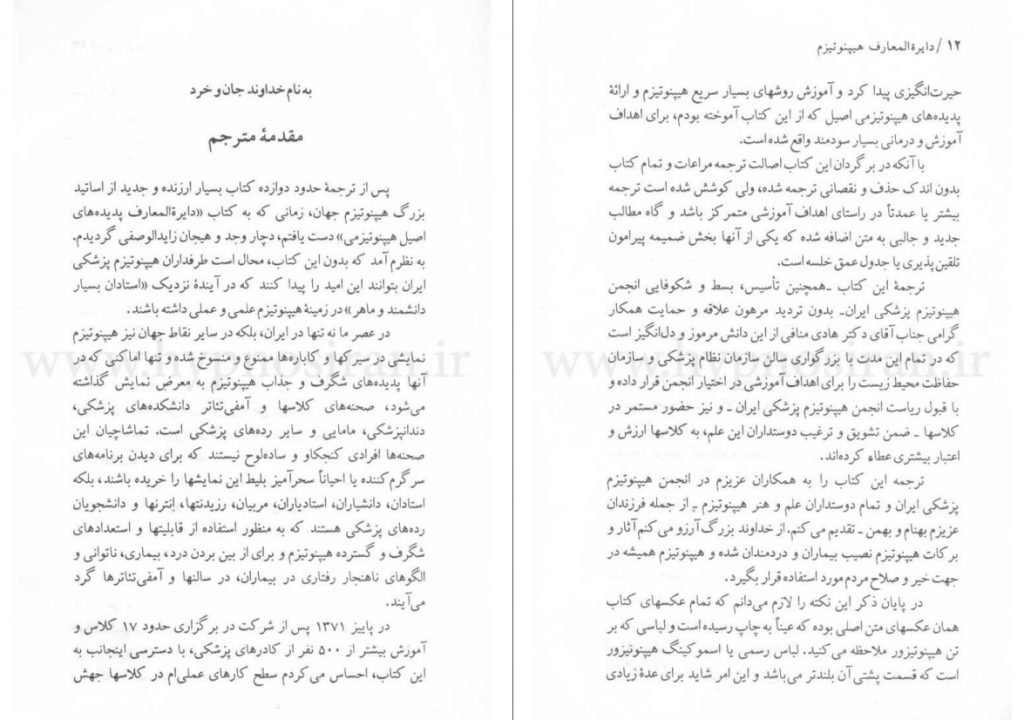 به نام خداوند جان و خرد
مقدمهٔ مترجم
پس از ترجمهٔ حدود دوازده کتاب بسیار ارزنده و جدید از اساتید
بزرگ هیپنوتیزم جهان، زمانی که به کتاب «دایرةالمعارف پدیده‌های
اصیل هیپنوتیزمی» دست یافتم، دچار وجد و هیجان زایدالوصفی گردیدم.
به نظرم آمد که بدون این کتاب، محال است طرفداران هیپنوتیزم پزشکی
ایران بتوانند این امید را پیدا کنند که در آیندهٔ نزدیک «استادان بسیار
دانشمند و ماهر» در زمینهٔ هیپنوتیزم علمی و عملی داشته باشند.
در عصر ما نه تنها در ایران، بلکه در سایر نقاط جهان نیز هیپنوتیزم
نمایشی در سیرکها و کاباره‌ها ممنوع و منسوخ شده و تنها اماکنی که در
آنها پدیده‌های شگرف و جذاب هیپنوتیزم به معرض نمایش گذاشته
می‌شود، صحنه‌های کلاسها و آمفی‌تئاتر دانشکده‌های پزشکی،
دندانپزشکی، مامایی و سایر رده‌های پزشکی است. تماشاچیان این
صحنه‌ها افرادی کنجکاو و ساده‌لوح نیستند که برای دیدن برنامه‌های
سرگرم کننده یا احیاناً سحرآمیز بلیط این نمایشها را خریده باشند، بلکه
استادان، دانشیاران، استادیاران، مربیان، رزیدنتها، اِنترنها و دانشجویان
رده‌های پزشکی هستند که به منظور استفاده از قابلیتها و استعدادهای
شگرف و گسترده هیپنوتیزم و برای از بین بردن درد، بیماری، ناتوانی و
الگوهای ناهنجار رفتاری در بیماران، در سالنها و آمفی‌تئاترها گرد
می‌آیند.
در پاییز ۱۳۷۱ پس از شرکت در برگزاری حدود ۱۷ کلاس و
آموزش بیشتر از ۵۰۰ نفر از کادرهای پزشکی، با دسترسی اینجانب به
این کتاب، احساس می‌کردم سطح کارهای عملی‌ام در کلاسها جهش
www.hypnosiran.ir
۱۲ / دایرةالمعارف هیپنوتیزم
حیرت‌انگیزی پیدا کرد و آموزش روشهای بسیار سریع هیپنوتیزم و ارائهٔ
پدیده‌های هیپنوتیزمی اصیل که از این کتاب آموخته بودم، برای اهداف
آموزش و درمانی بسیار سودمند واقع شده است.
با آنکه در برگردان این کتاب اصالت ترجمه مراعات و تمام کتاب
بدون اندک حذف و نقصانی ترجمه شده، ولی کوشش شده است ترجمه
بیشتر یا عمدتاً در راستای اهداف آموزشی متمرکز باشد و گاه مطالب
جدید و جالبی به متن اضافه شده که یکی از آنها بخش ضمیمه پیرامون
تلقین‌پذیری یا جدول عمق خلسه است.
ترجمهٔ این کتاب ـ همچنین تأسیس، بسط و شکوفایی انجمن
هیپنوتیزم پزشکی ایران ـ بدون تردید مرهون علاقه و حمایت همکار
گرامی جناب آقای دکتر هادی منافی از این دانش مرموز و دل‌انگیز است
که در تمام این مدت با بزرگواری سالن سازمان نظام پزشکی و سازمان
حفاظت محیط زیست را برای اهداف آموزشی در اختیار انجمن قرار داده و
با قبول ریاست انجمن هیپنوتیزم پزشکی ایران ـ و نیز حضور مستمر در
کلاسها ـ ضمن تشویق و ترغیب دوستداران این علم، به کلاسها ارزش و
اعتبار بیشتری عطاء کرده‌اند.
ترجمه این کتاب را به همکاران عزیزم در انجمن هیپنوتیزم
پزشکی ایران و تمام دوستداران علم و هنر هیپنوتیزم ـ از جمله فرزندان
عزیزم بهنام و بهمن ـ تقدیم می‌کنم. از خداوند بزرگ آرزو می‌کنم آثار و
برکات هیپنوتیزم نصیب بیماران و دردمندان شده و هیپنوتیزم همیشه در
جهت خیر و صلاح مردم مورد استفاده قرار بگیرد.
در پایان ذکر این نکته را لازم می‌دانم که تمام عکسهای کتاب
همان عکسهای متن اصلی بوده که عیناً به چاپ رسیده است و لباسی که بر
تن هیپنوتیزور ملاحظه می‌کنید. لباس رسمی یا اسموکینگ هیپنوتیزور
است که قسمت پشتی آن بلندتر می‌باشد و این امر شاید برای عدهٔ زیادی
www.hypnosiran.ir